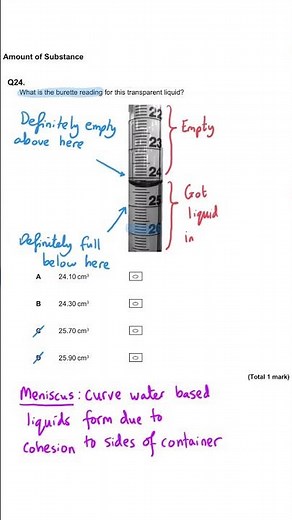 Amount of Substance
Q24.
What is the burette reading for this transparent liquid?
Definitely empty
above here
22
Empty
23
24
Got
liquid
in
25
26
Definitely full
below here
A 24.10 cm³
B 24.30 cm³
C 25.70 cm³
D 25.90 cm³
(Total 1 mark)
Meniscus: Curve water based
liquids form due to
cohesion to sides of container